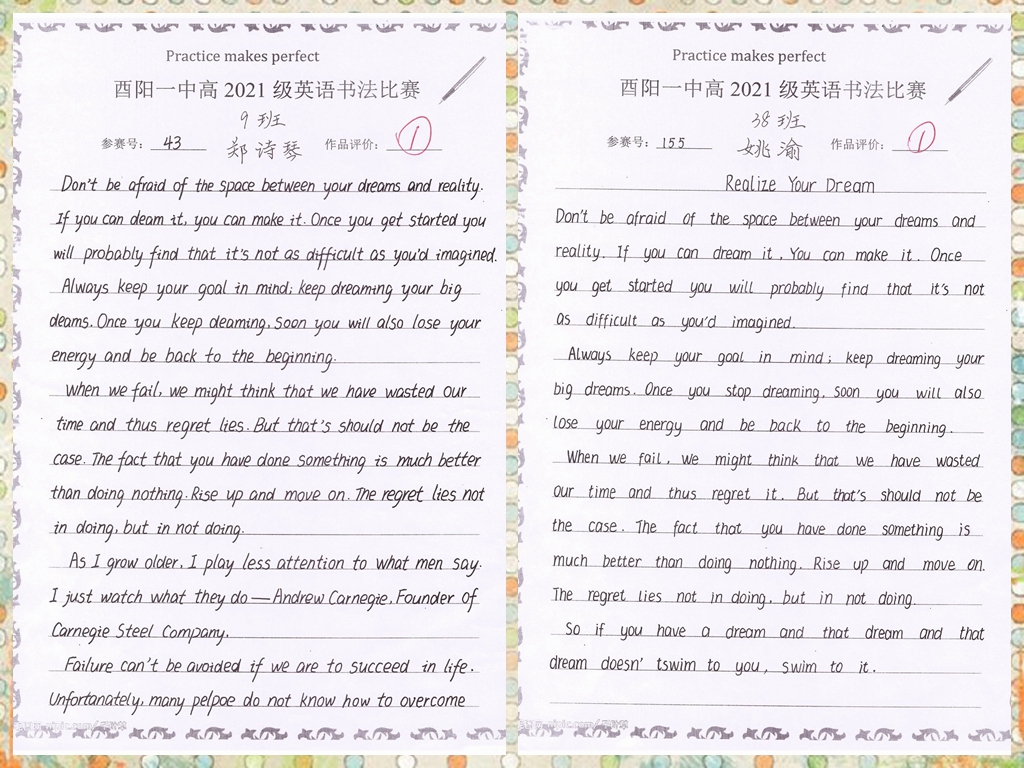 Practice makes perfect
酉阳一中高 2021 级英语书法比赛
9 班
参赛号: 43 郑诗琴 作品评价: 1
Don't be afraid of the space between your dreams and reality.
If you can deam it, you can make it. Once you get started you
will probably find that it's not as difficult as you'd imagined.
Always keep your goal in mind; keep dreaming your big
deams. Once you keep deaming, soon you will also lose your
energy and be back to the beginning.
When we fail, we might think that we have wasted our
time and thus regret lies. But that's should not be the
case. The fact that you have done something is much better
than doing nothing. Rise up and move on. The regret lies not
in doing, but in not doing.
As I grow older, I play less attention to what men say.
I just watch what they do — Andrew Carnegie, Founder of
Carnegie Steel Company.
Failure can't be avoided if we are to succeed in life.
Unfortanately, many pelpoe do not know how to overcome
Practice makes perfect
酉阳一中高 2021 级英语书法比赛
38 班
参赛号: 155 姚渝 作品评价: 1
Realize Your Dream
Don't be afraid of the space between your dreams and
reality. If you can dream it, You can make it. Once
you get started you will probably find that it's not
as difficult as you'd imagined.
Always keep your goal in mind; keep dreaming your
big dreams. Once you stop dreaming, soon you will also
lose your energy and be back to the beginning.
When we fail, we might think that we have wasted
our time and thus regret it. But that's should not be
the case. The fact that you have done something is
much better than doing nothing. Rise up and move on.
The regret lies not in doing, but in not doing.
So if you have a dream and that dream and that
dream doesn' tswim to you, swim to it.